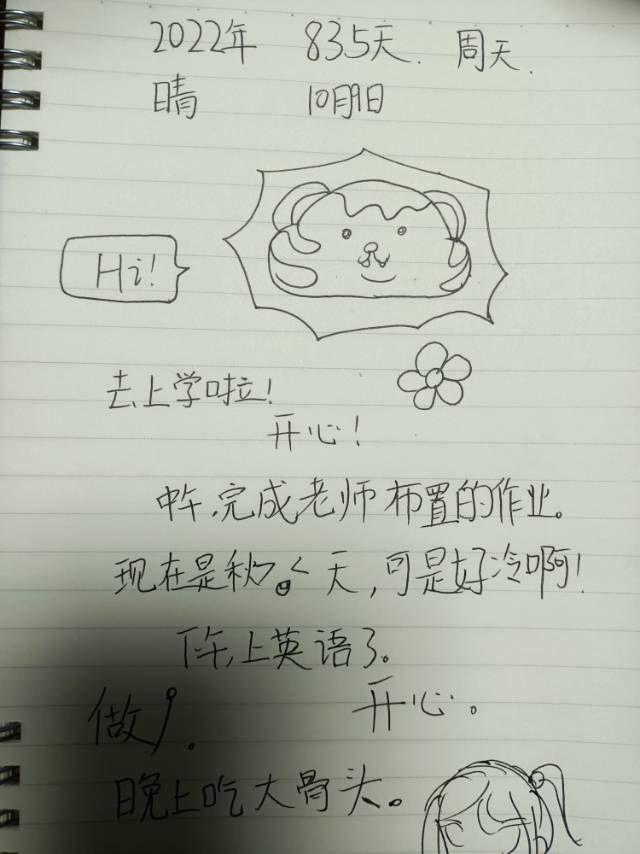 2022年 835天. 周天.
晴 10月9日
Hi!
去上学啦!
开心!
中午,完成老师布置的作业。
现在是秋 天,可是好冷啊!
下午,上英语了。
做 。 开心。
晚上吃大骨头。